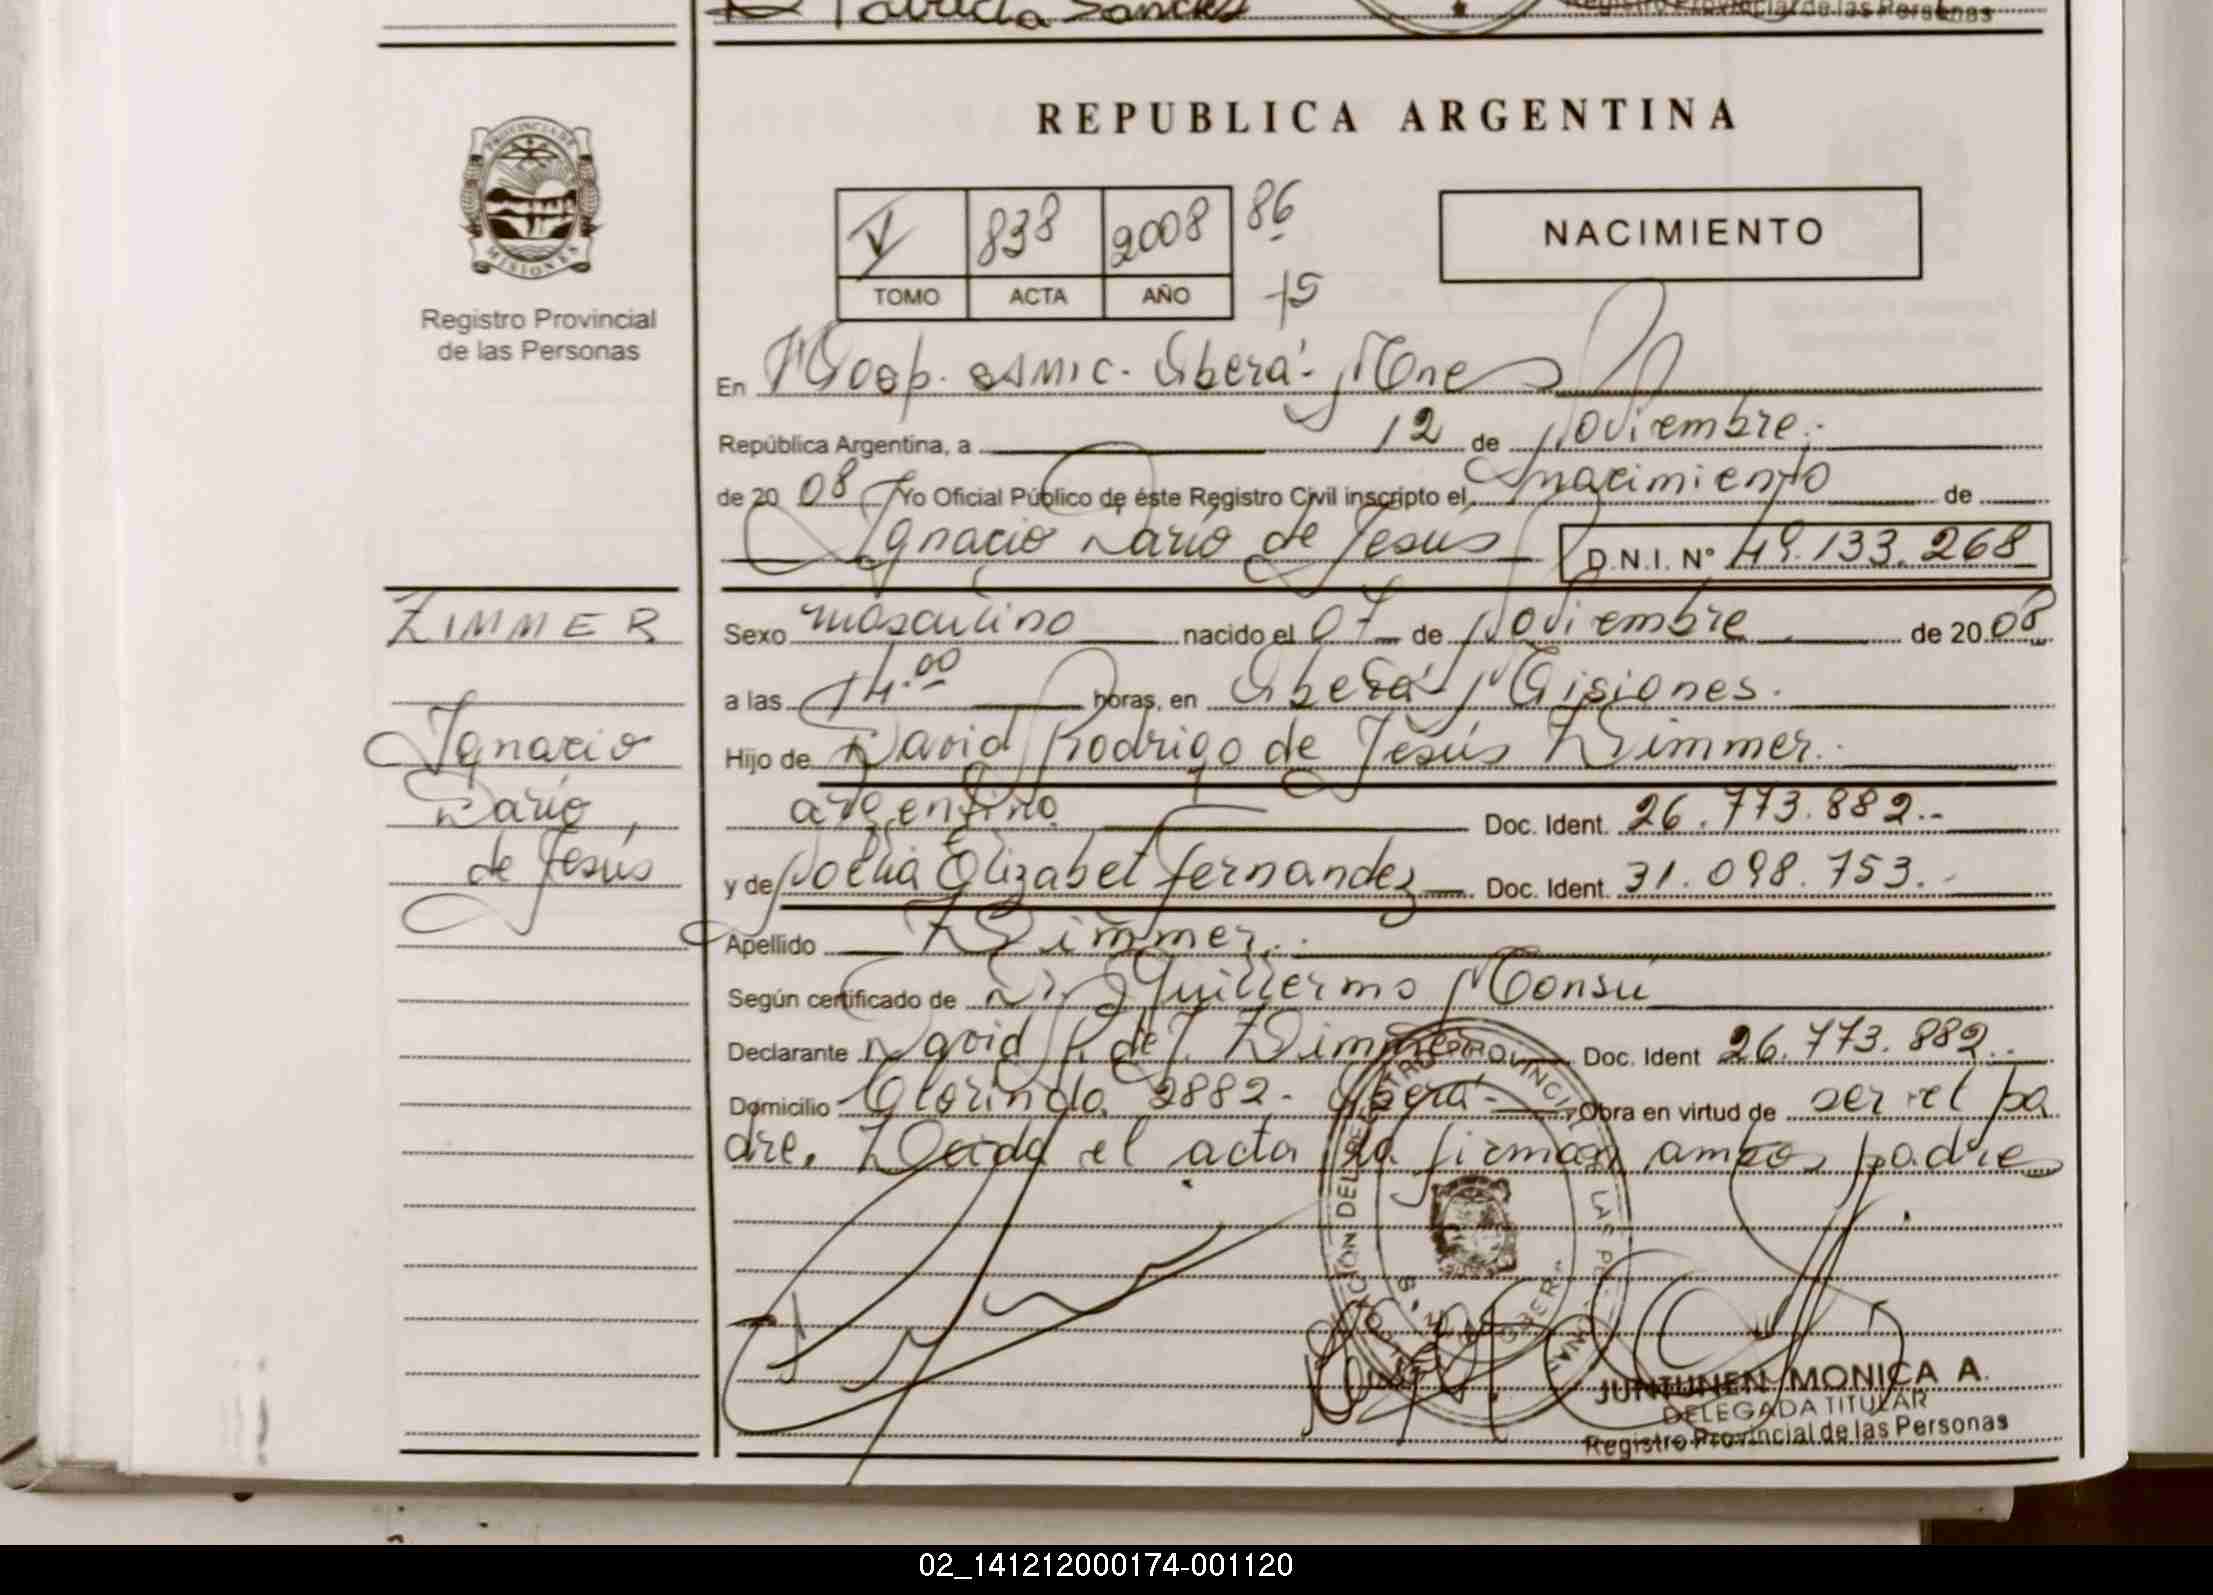 Patricia Sanches
Registro Provincial de las Personas
REPUBLICA ARGENTINA
PROVINCIA DE
MISIONES
Registro Provincial
de las Personas
V 838 2008 86
TOMO ACTA AÑO 75
NACIMIENTO
En Hosp. Oberá - Mnes
República Argentina, a 12 de Noviembre.-
de 20 08 Yo Oficial Público de éste Registro Civil inscripto el nacimiento de
Ignacio Darío de Jesús D.N.I. Nº 49.133.268
ZIMMER
Ignacio
Darío
de Jesús
Sexo masculino nacido el 07 de Noviembre de 2008
a las 14.00 horas, en Oberá - Misiones.
Hijo de David Rodrigo de Jesús Zimmer.-
argentino Doc. Ident. 26.773.882.-
y de Noelia Elizabet Fernandez Doc. Ident. 31.098.753.-
Apellido Zimmer.-
Según certificado de Dr Guillermo Monsú
Declarante David R. de J. Zimmer Doc. Ident 26.773.882.-
Domicilio Clorinda 2882 - Oberá - Obra en virtud de ser el pa
dre. Leida el acta la firman ambos padres
JUNTUNEN MONICA A.
DELEGADA TITULAR
Registro Provincial de las Personas
02_141212000174-001120